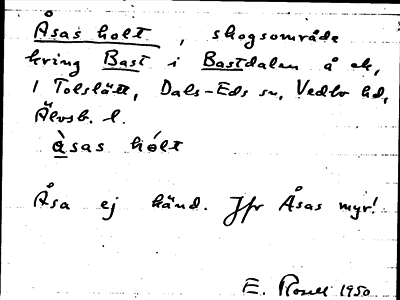 Åsas holt, skogsområde
kring Bast i Bastdalen å ek,
1 Tolslätt, Dals-Eds sn, Vedbo hd,
Älvsb. l.
àsas hólt
Åsa ej känd. Jfr Åsas myr!
E. Rosell 1950